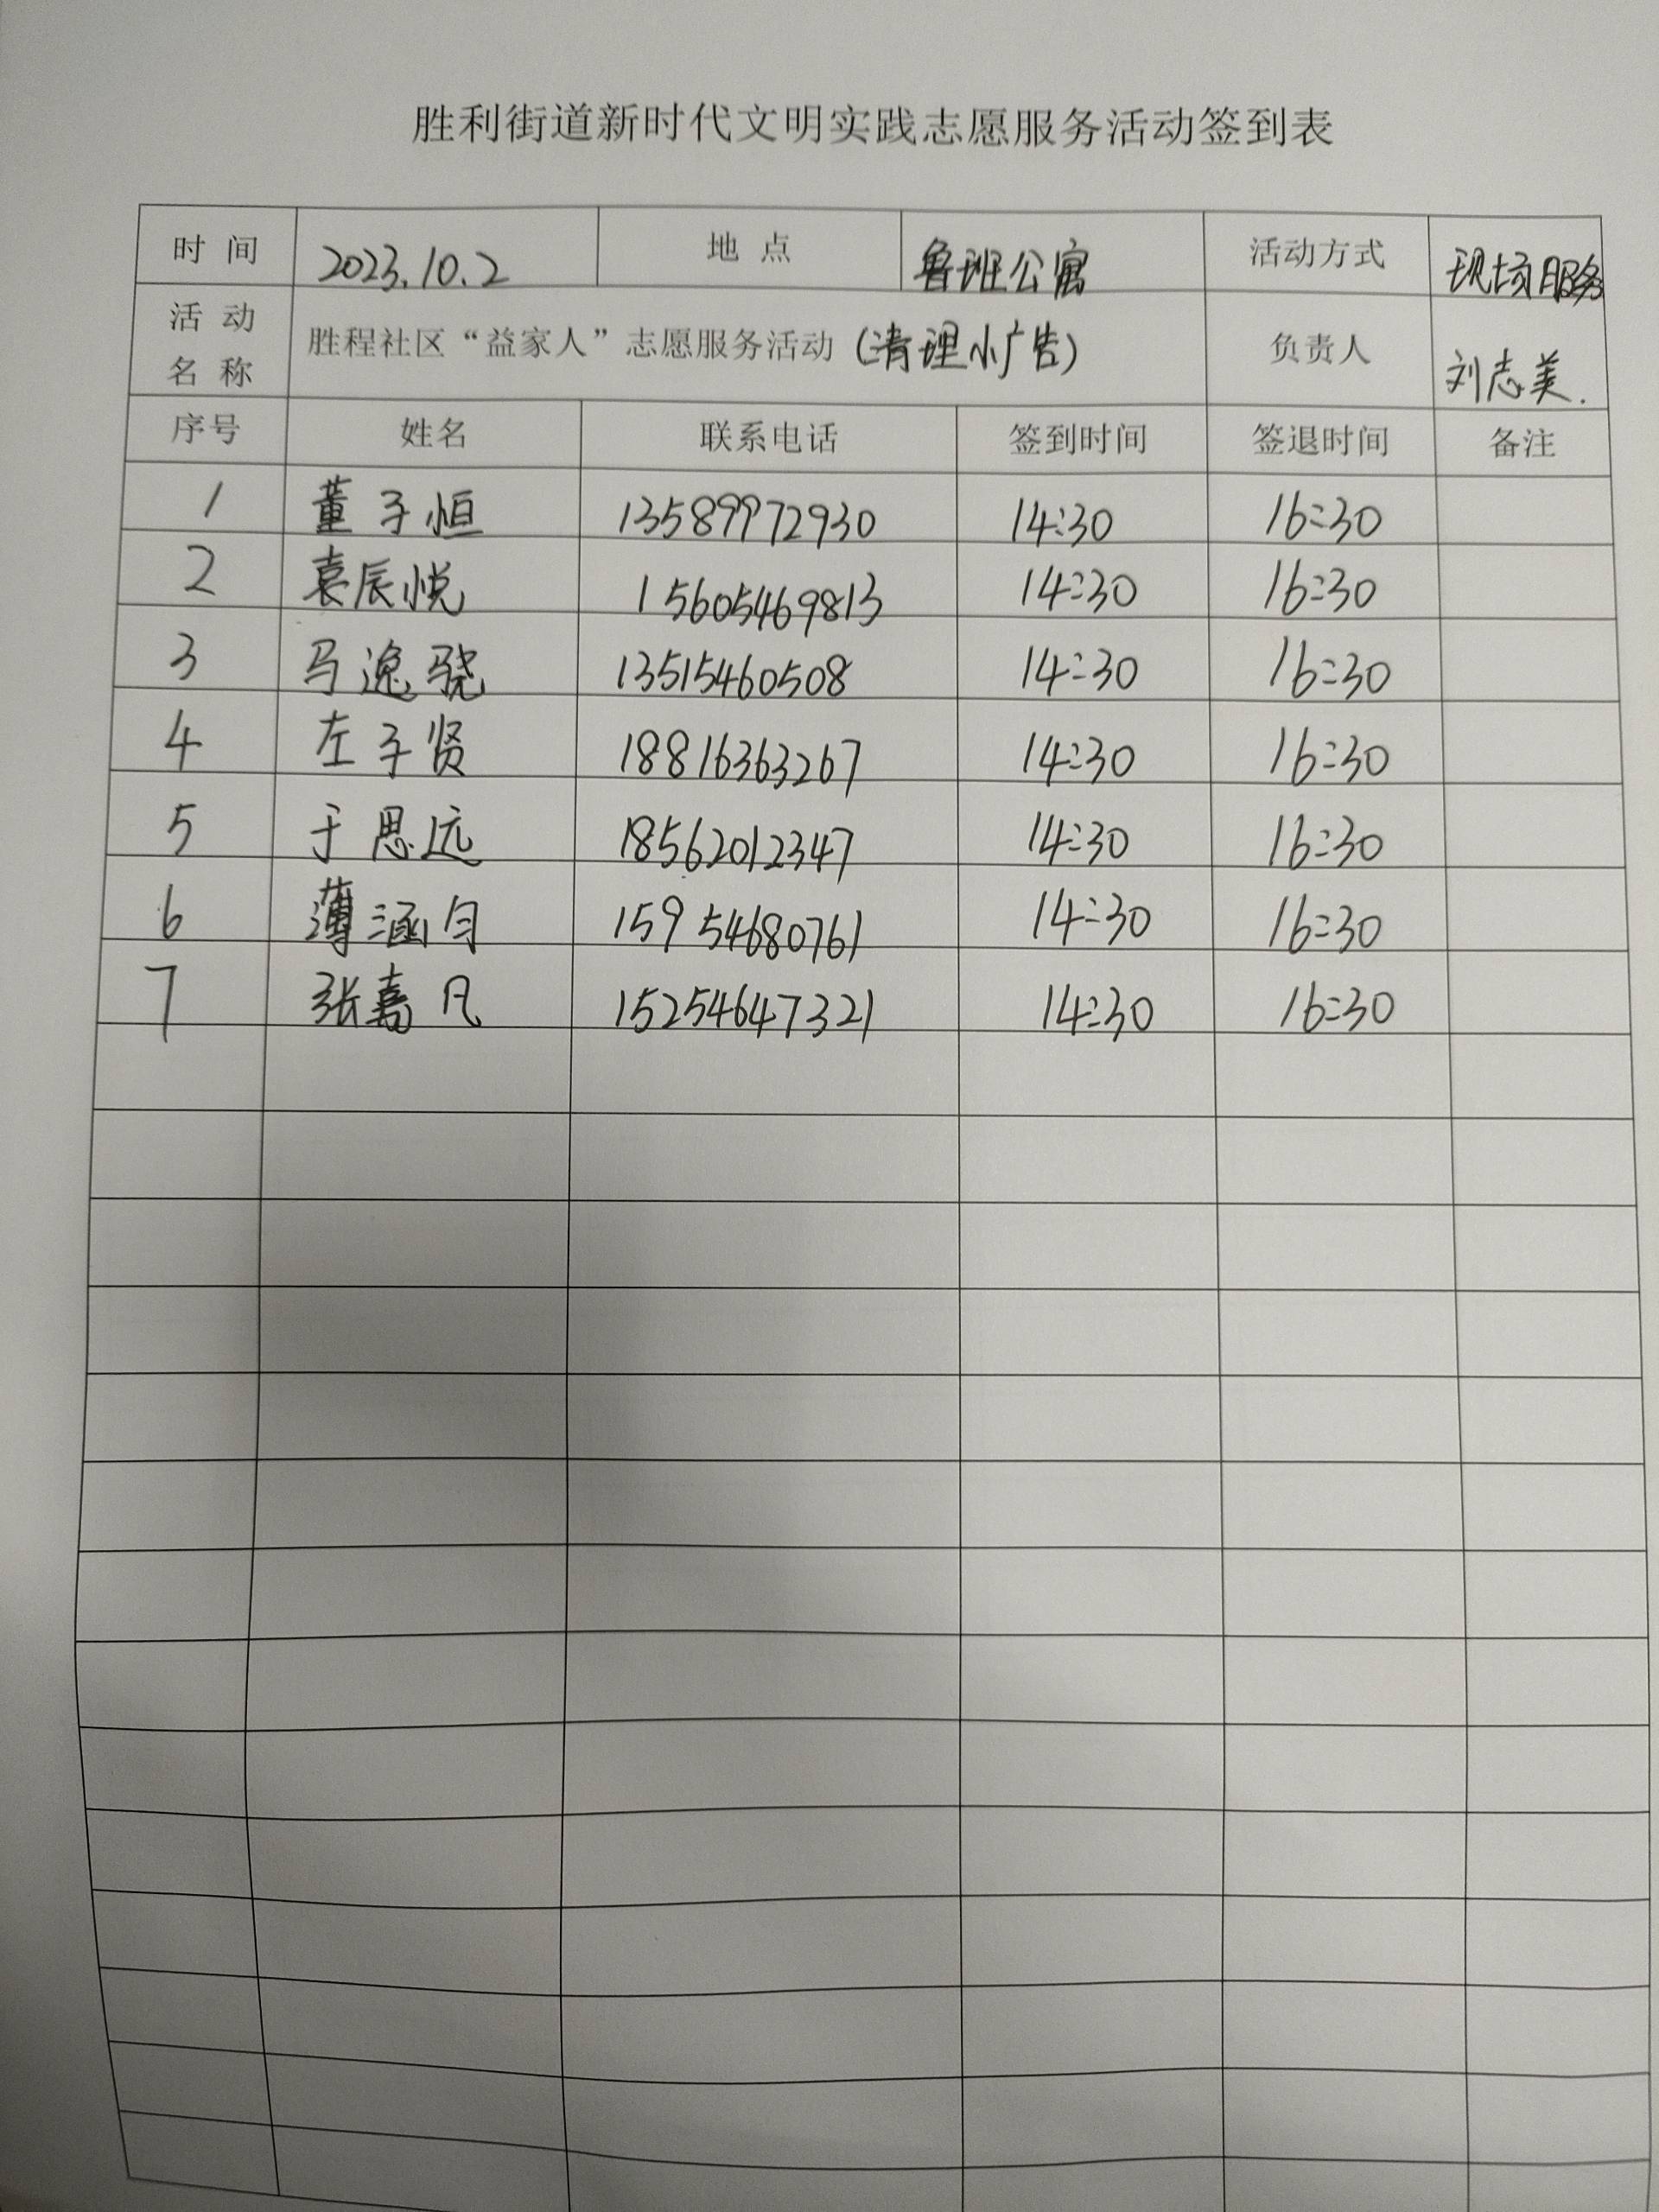 胜利街道新时代文明实践志愿服务活动签到表
时 间 2023.10.2 地 点 鲁班公寓 活动方式 现场服务
活 动 名 称 胜程社区“益家人”志愿服务活动(清理小广告) 负责人 刘志美.
序号 姓名 联系电话 签到时间 签退时间 备注
1 董子恒 13589972930 14:30 16:30
2 袁辰悦 15605469813 14:30 16:30
3 马逸骁 13515460508 14:30 16:30
4 左子贤 18816363267 14:30 16:30
5 于思远 18562012347 14:30 16:30
6 薄涵匀 15954680761 14:30 16:30
7 张嘉凡 15254647321 14:30 16:30